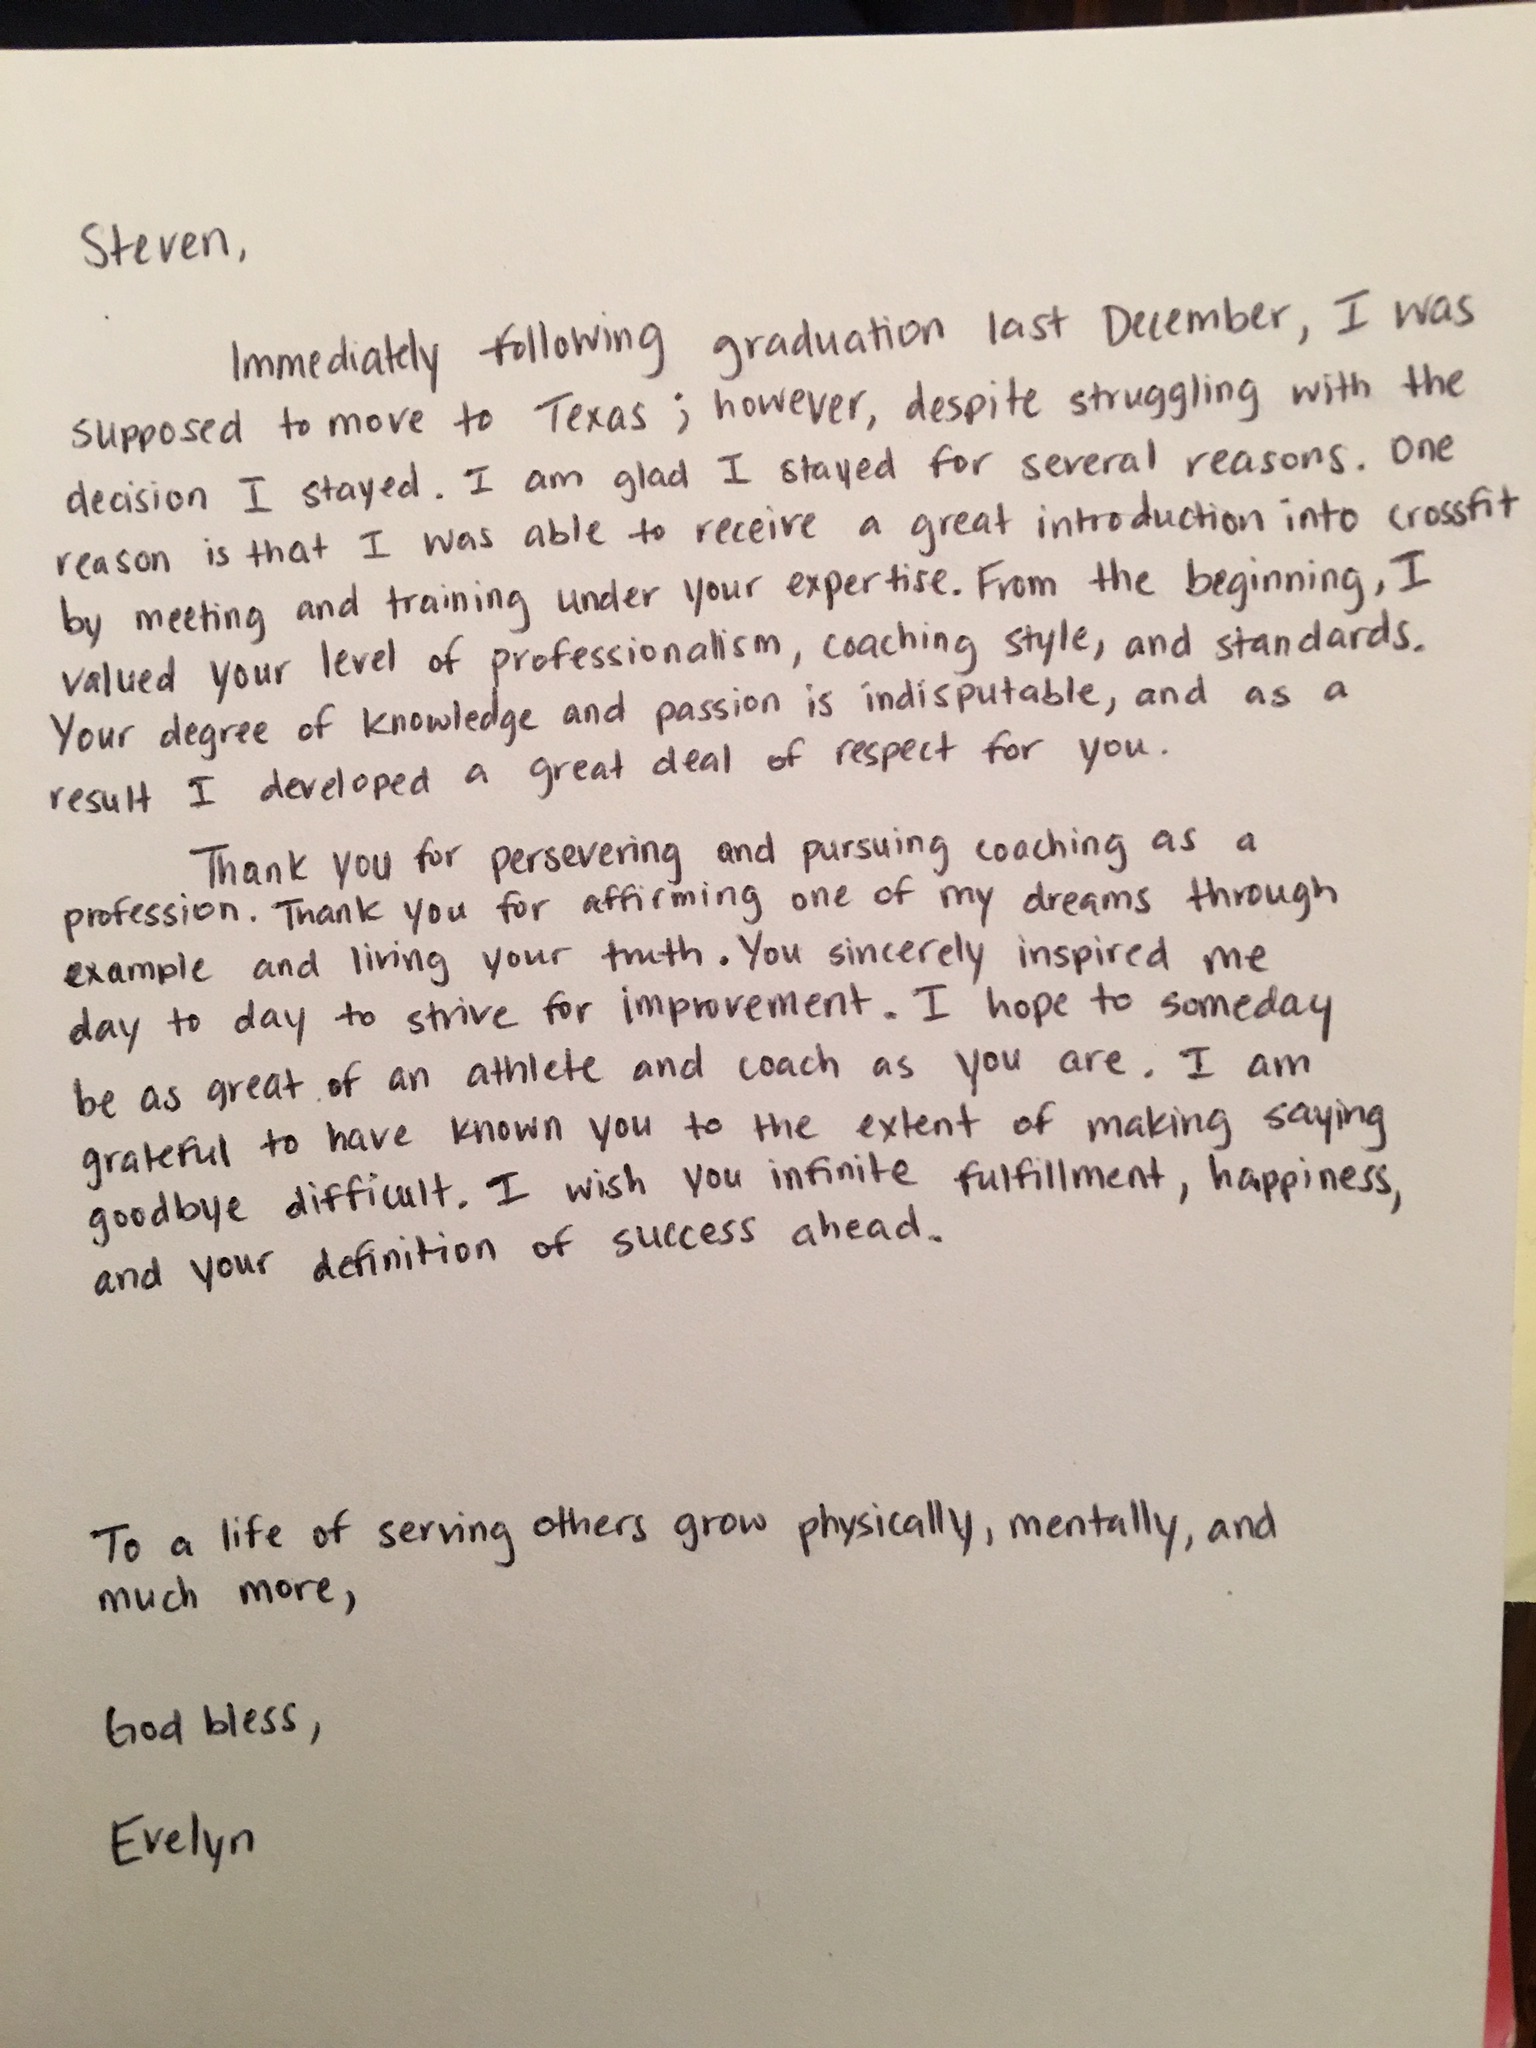 Steven,
Immediately following graduation last December, I was
supposed to move to Texas; however, despite struggling with the
decision I stayed. I am glad I stayed for several reasons. One
reason is that I was able to receive a great introduction into crossfit
by meeting and training under your expertise. From the beginning, I
valued your level of professionalism, coaching style, and standards.
Your degree of knowledge and passion is indisputable, and as a
result I developed a great deal of respect for you.
Thank you for persevering and pursuing coaching as a
profession. Thank you for affirming one of my dreams through
example and living your truth. You sincerely inspired me
day to day to strive for improvement. I hope to someday
be as great of an athlete and coach as you are. I am
grateful to have known you to the extent of making saying
goodbye difficult. I wish you infinite fulfillment, happiness,
and your definition of success ahead.
To a life of serving others grow physically, mentally, and
much more,
God bless,
Evelyn